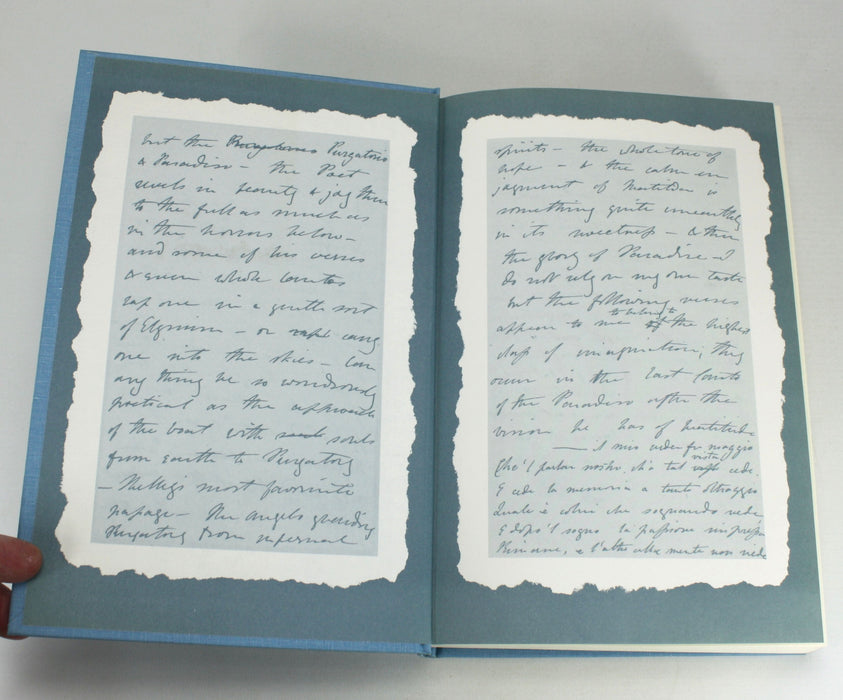 but the Purgatorio Purgatorio
& Paradiso – the Poet
revels in beauty & joy there
to the full as much as
in the horrors below –
and some of his verses
& even whole Cantos
rap one in a gentle sort
of Elysium – or carry
one into the skies – Can
any thing be so wondrously
poetical as the approach
of the boat with souls
from earth to Purgatory
– Shelley's most favourite
passage – the Angels guarding
Purgatory from infernal
spirits – the whole tone of
hope – & the calm en
joyment of Matilda is
something quite unearthly
in its sweetness – & then
the glory of Paradise – I
do not rely on my own taste
but the following verses
appear to me to belong to the highest
class of imagination; they
occur in the last Canto
of the Paradiso after the
vision he has of beatitude
— il mio veder fu maggio
Che'l parlar nostro, ch'a tal vista cede.
E cede la memoria a tanto oltraggio
Quale è colui che sognando vede
E dopo'l sogno la passione impressa
Rimane, e l'altro alla mente non riede